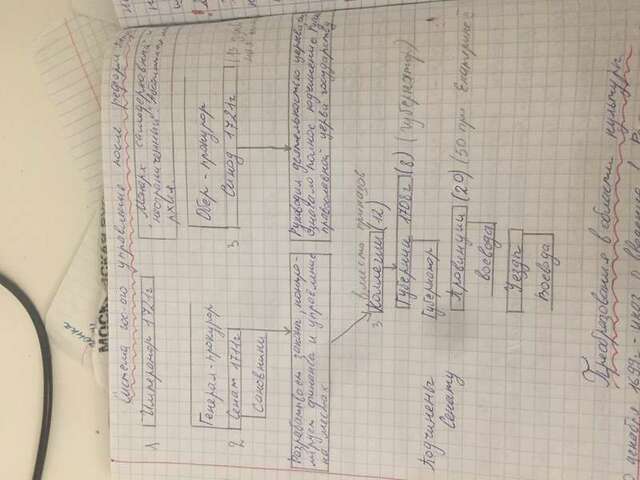 Система гос-ого управление после реформ
1 Император 1721г
Монарх самодержавный и
неограниченный
Генерал-прокурор
2 Сенат 1711г
Сановники
Обер-прокурор
3 Синод 1721г
Разрабатывает законы, контро-
лирует финансы и управление
на местах
Руководил деятельностью церкви
Означало полное подчинение
православной церкви государству
вместо приказов
3 Коллегии (12)
Губернии 1708г (8) (губернатор)
Губернатор
Подчинены
Сенату
Провинции (20) (50 при Екатерине
воевода
Уезды
Воевода
Преобразования в области культуры
декабрь 1699